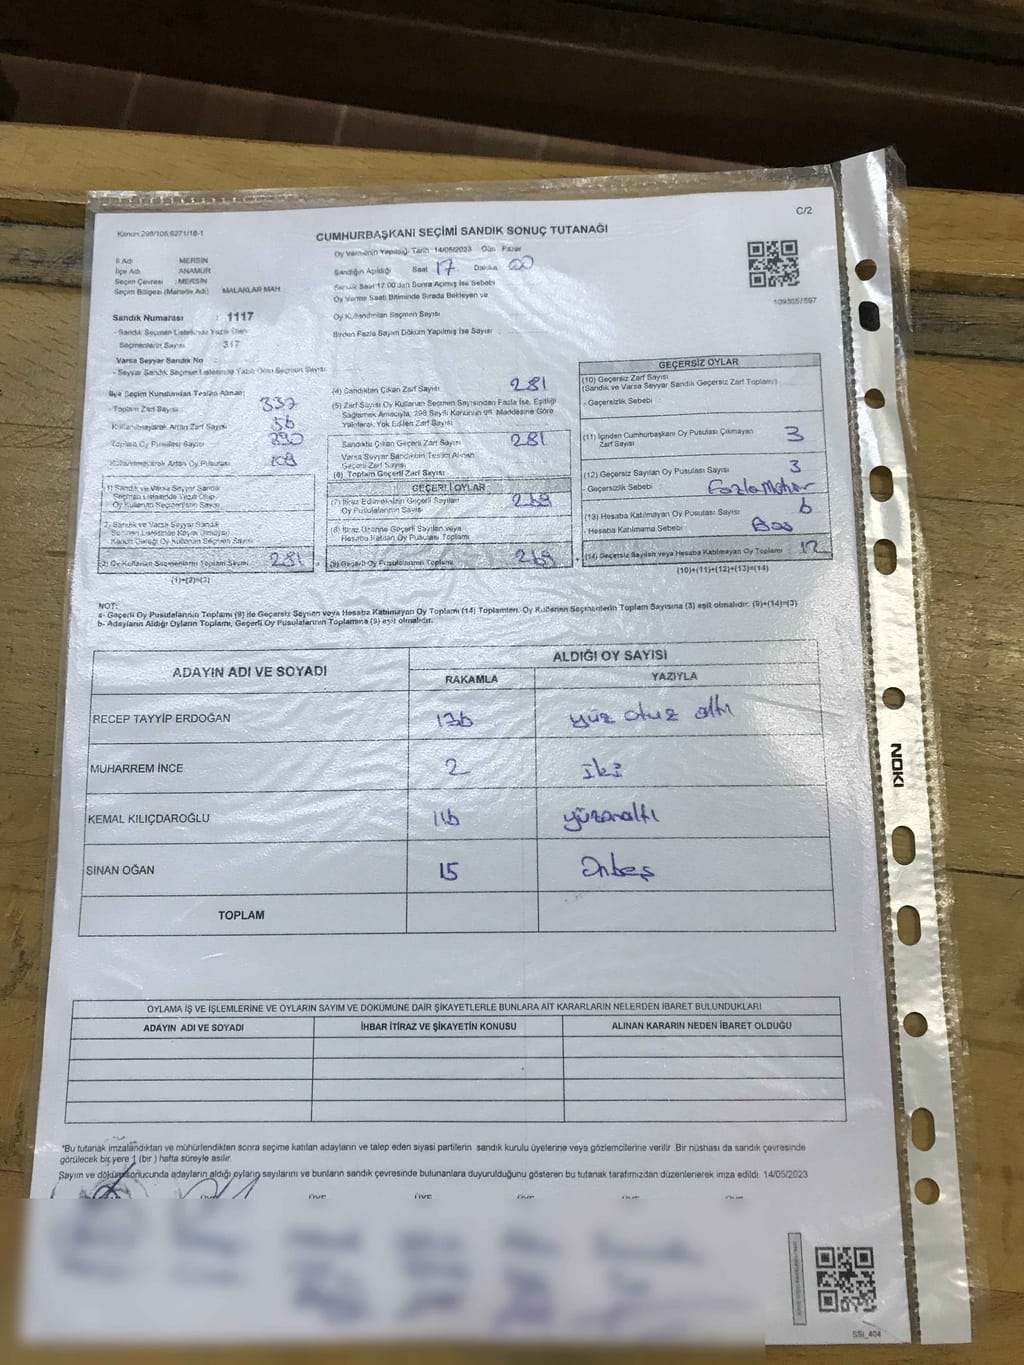 C/2
Kanun:298/105;6271/18-1
CUMHURBAŞKANI SEÇİMİ SANDIK SONUÇ TUTANAĞI
İl Adı MERSİN
İlçe Adı ANAMUR
Seçim Çevresi : MERSİN
Seçim Bölgesi (Mahalle Adı) MALAKLAR MAH
Sandık Numarası : 1117
- Sandık Seçmen Listesinde Yazılı Olan
Seçmenlerin Sayısı : 317
Varsa Seyyar Sandık No
- Seyyar Sandık Seçmen Listesinde Yazılı Olan Seçmen Sayısı
Oy Vermenin Yapıldığı Tarih 14/05/2023 Gün Pazar
Sandığın Açıldığı Saat 17 Dakika 00
Sandık Saat 17.00'den Sonra Açılmış İse Sebebi
Oy Verme Saati Bitiminde Sırada Bekleyen ve
Oy Kullandırılan Seçmen Sayısı
Birden Fazla Sayım Döküm Yapılmış İse Sayısı
1093557697
İlçe Seçim Kurulundan Teslim Alınan
- Toplam Zarf Sayısı 337
Kullanılmayarak Artan Zarf Sayısı 56
Toplam Oy Pusulası Sayısı 390
Kullanılmayarak Artan Oy Pusulası 109
1) Sandık ve Varsa Seyyar Sandık
Seçmen Listesinde Yazılı Olup,
Oy Kullanan Seçmenlerin Sayısı
2) Sandık ve Varsa Seyyar Sandık
Seçmen Listesinde Kaydı Olmayıp
Kanun Gereği Oy Kullanan Seçmen Sayısı
(3) Oy Kullanan Seçmenlerin Toplam Sayısı 281
(1)+(2)=(3)
(4) Sandıktan Çıkan Zarf Sayısı 281
(5) Zarf Sayısı Oy Kullanan Seçmen Sayısından Fazla İse, Eşitliği
Sağlamak Amacıyla, 298 Sayılı Kanunun 98. Maddesine Göre
Yakılarak Yok Edilen Zarf Sayısı
Sandıktan Çıkan Geçerli Zarf Sayısı 281
Varsa Seyyar Sandıktan Teslim Alınan
Geçerli Zarf Sayısı
(6) Toplam Geçerli Zarf Sayısı
GEÇERLİ OYLAR
(7) İtiraz Edilmeksizin Geçerli Sayılan
Oy Pusulalarının Sayısı 269
(8) İtiraz Üzerine Geçerli Sayılan veya
Hesaba Katılan Oy Pusulası Toplamı
(9) Geçerli Oy Pusulalarının Toplamı 269
GEÇERSİZ OYLAR
(10) Geçersiz Zarf Sayısı
(Sandık ve Varsa Seyyar Sandık Geçersiz Zarf Toplamı)
- Geçersizlik Sebebi
(11) İçinden Cumhurbaşkanı Oy Pusulası Çıkmayan
Zarf Sayısı 3
(12) Geçersiz Sayılan Oy Pusulası Sayısı 3
Geçersizlik Sebebi Fazla Mühür
(13) Hesaba Katılmayan Oy Pusulası Sayısı 6
Hesaba Katılmama Sebebi Boş
(14) Geçersiz Sayılan veya Hesaba Katılmayan Oy Toplamı 12
(10)+(11)+(12)+(13)=(14)
NOT:
a- Geçerli Oy Pusulalarının Toplamı (9) ile Geçersiz Sayılan veya Hesaba Katılmayan Oy Toplamı (14) Toplamları, Oy Kullanan Seçmenlerin Toplam Sayısına (3) eşit olmalıdır. (9)+(14)=(3)
b- Adayların Aldığı Oyların Toplamı, Geçerli Oy Pusulalarının Toplamına (9) eşit olmalıdır.
ADAYIN ADI VE SOYADI ALDIĞI OY SAYISI
RAKAMLA YAZIYLA
RECEP TAYYİP ERDOĞAN 136 yüz otuz altı
MUHARREM İNCE 2 iki
KEMAL KILIÇDAROĞLU 116 yüzonaltı
SİNAN OĞAN 15 Onbeş
TOPLAM
OYLAMA İŞ VE İŞLEMLERİNE VE OYLARIN SAYIM VE DÖKÜMÜNE DAİR ŞİKAYETLERLE BUNLARA AİT KARARLARIN NELERDEN İBARET BULUNDUKLARI
ADAYIN ADI VE SOYADI İHBAR İTİRAZ VE ŞİKAYETİN KONUSU ALINAN KARARIN NEDEN İBARET OLDUĞU
*Bu tutanak imzalandıktan ve mühürlendikten sonra seçime katılan adayların ve talep eden siyasi partilerin sandık kurulu üyelerine veya gözlemcilerine verilir. Bir nüshası da sandık çevresinde
görülecek bir yere 1 (bir ) hafta süreyle asılır.
Sayım ve döküm sonucunda adayların aldığı oyların sayılarını ve bunların sandık çevresinde bulunanlara duyurulduğunu gösteren bu tutanak tarafımızdan düzenlenerek imza edildi. 14/05/2023
ÜYE ÜYE ÜYE ÜYE ÜYE
SSİ_404
NOKI